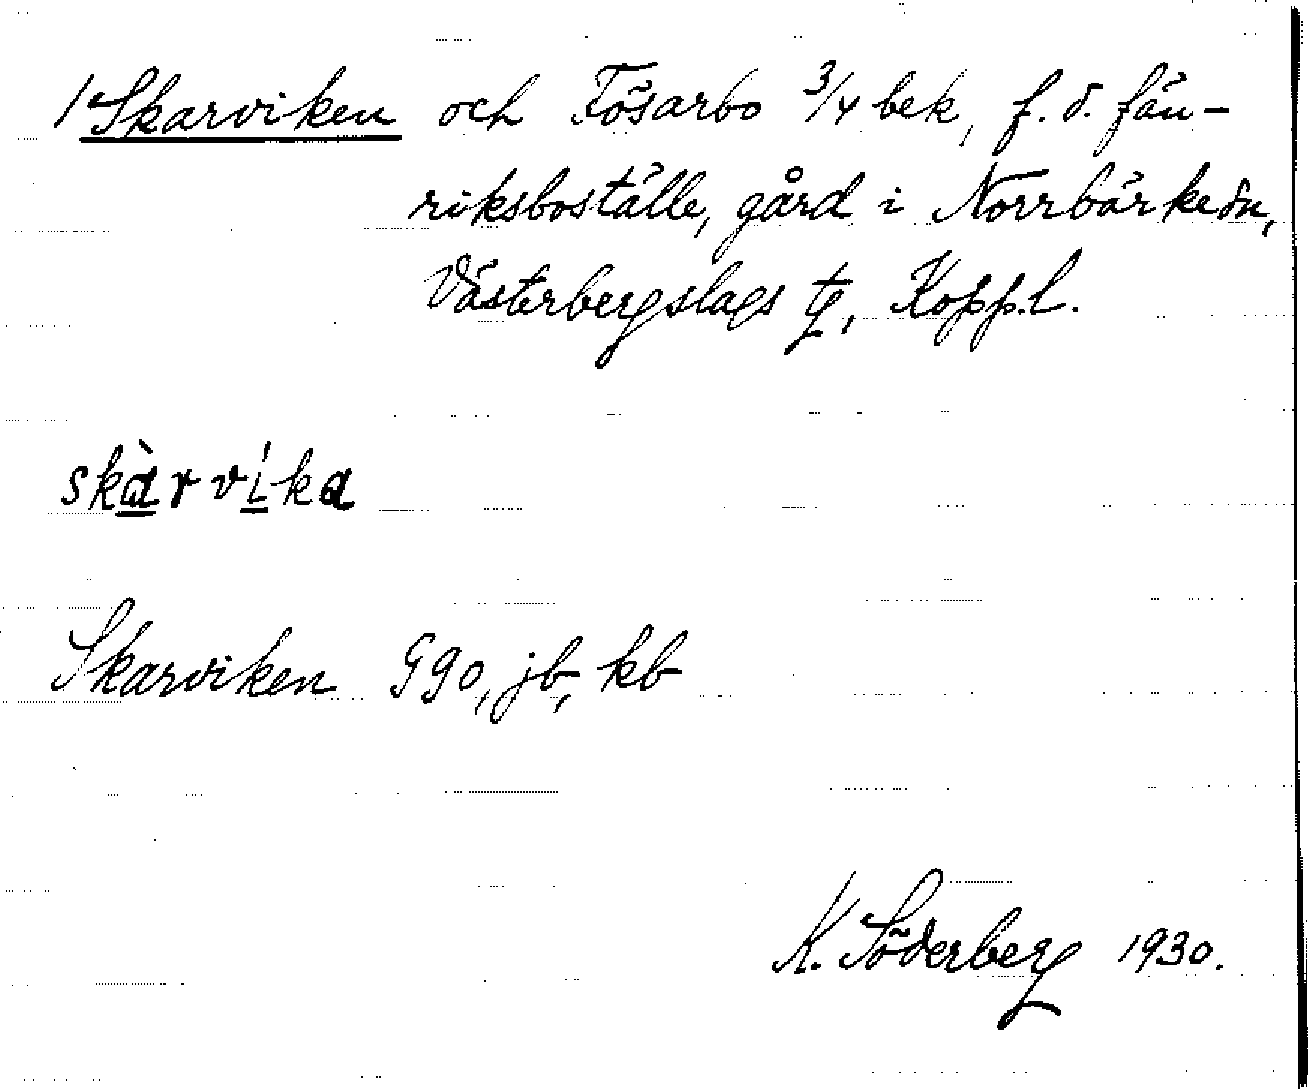 1 Skarviken och Fösarbo 3/4 bek, f. d. fän-
riksboställe, gård i Norrbärke sn,
Västerbergslags tg, Kopp.l.
skàrvíka
Skarviken Ggo, jb, kb
K. Söderberg 1930.